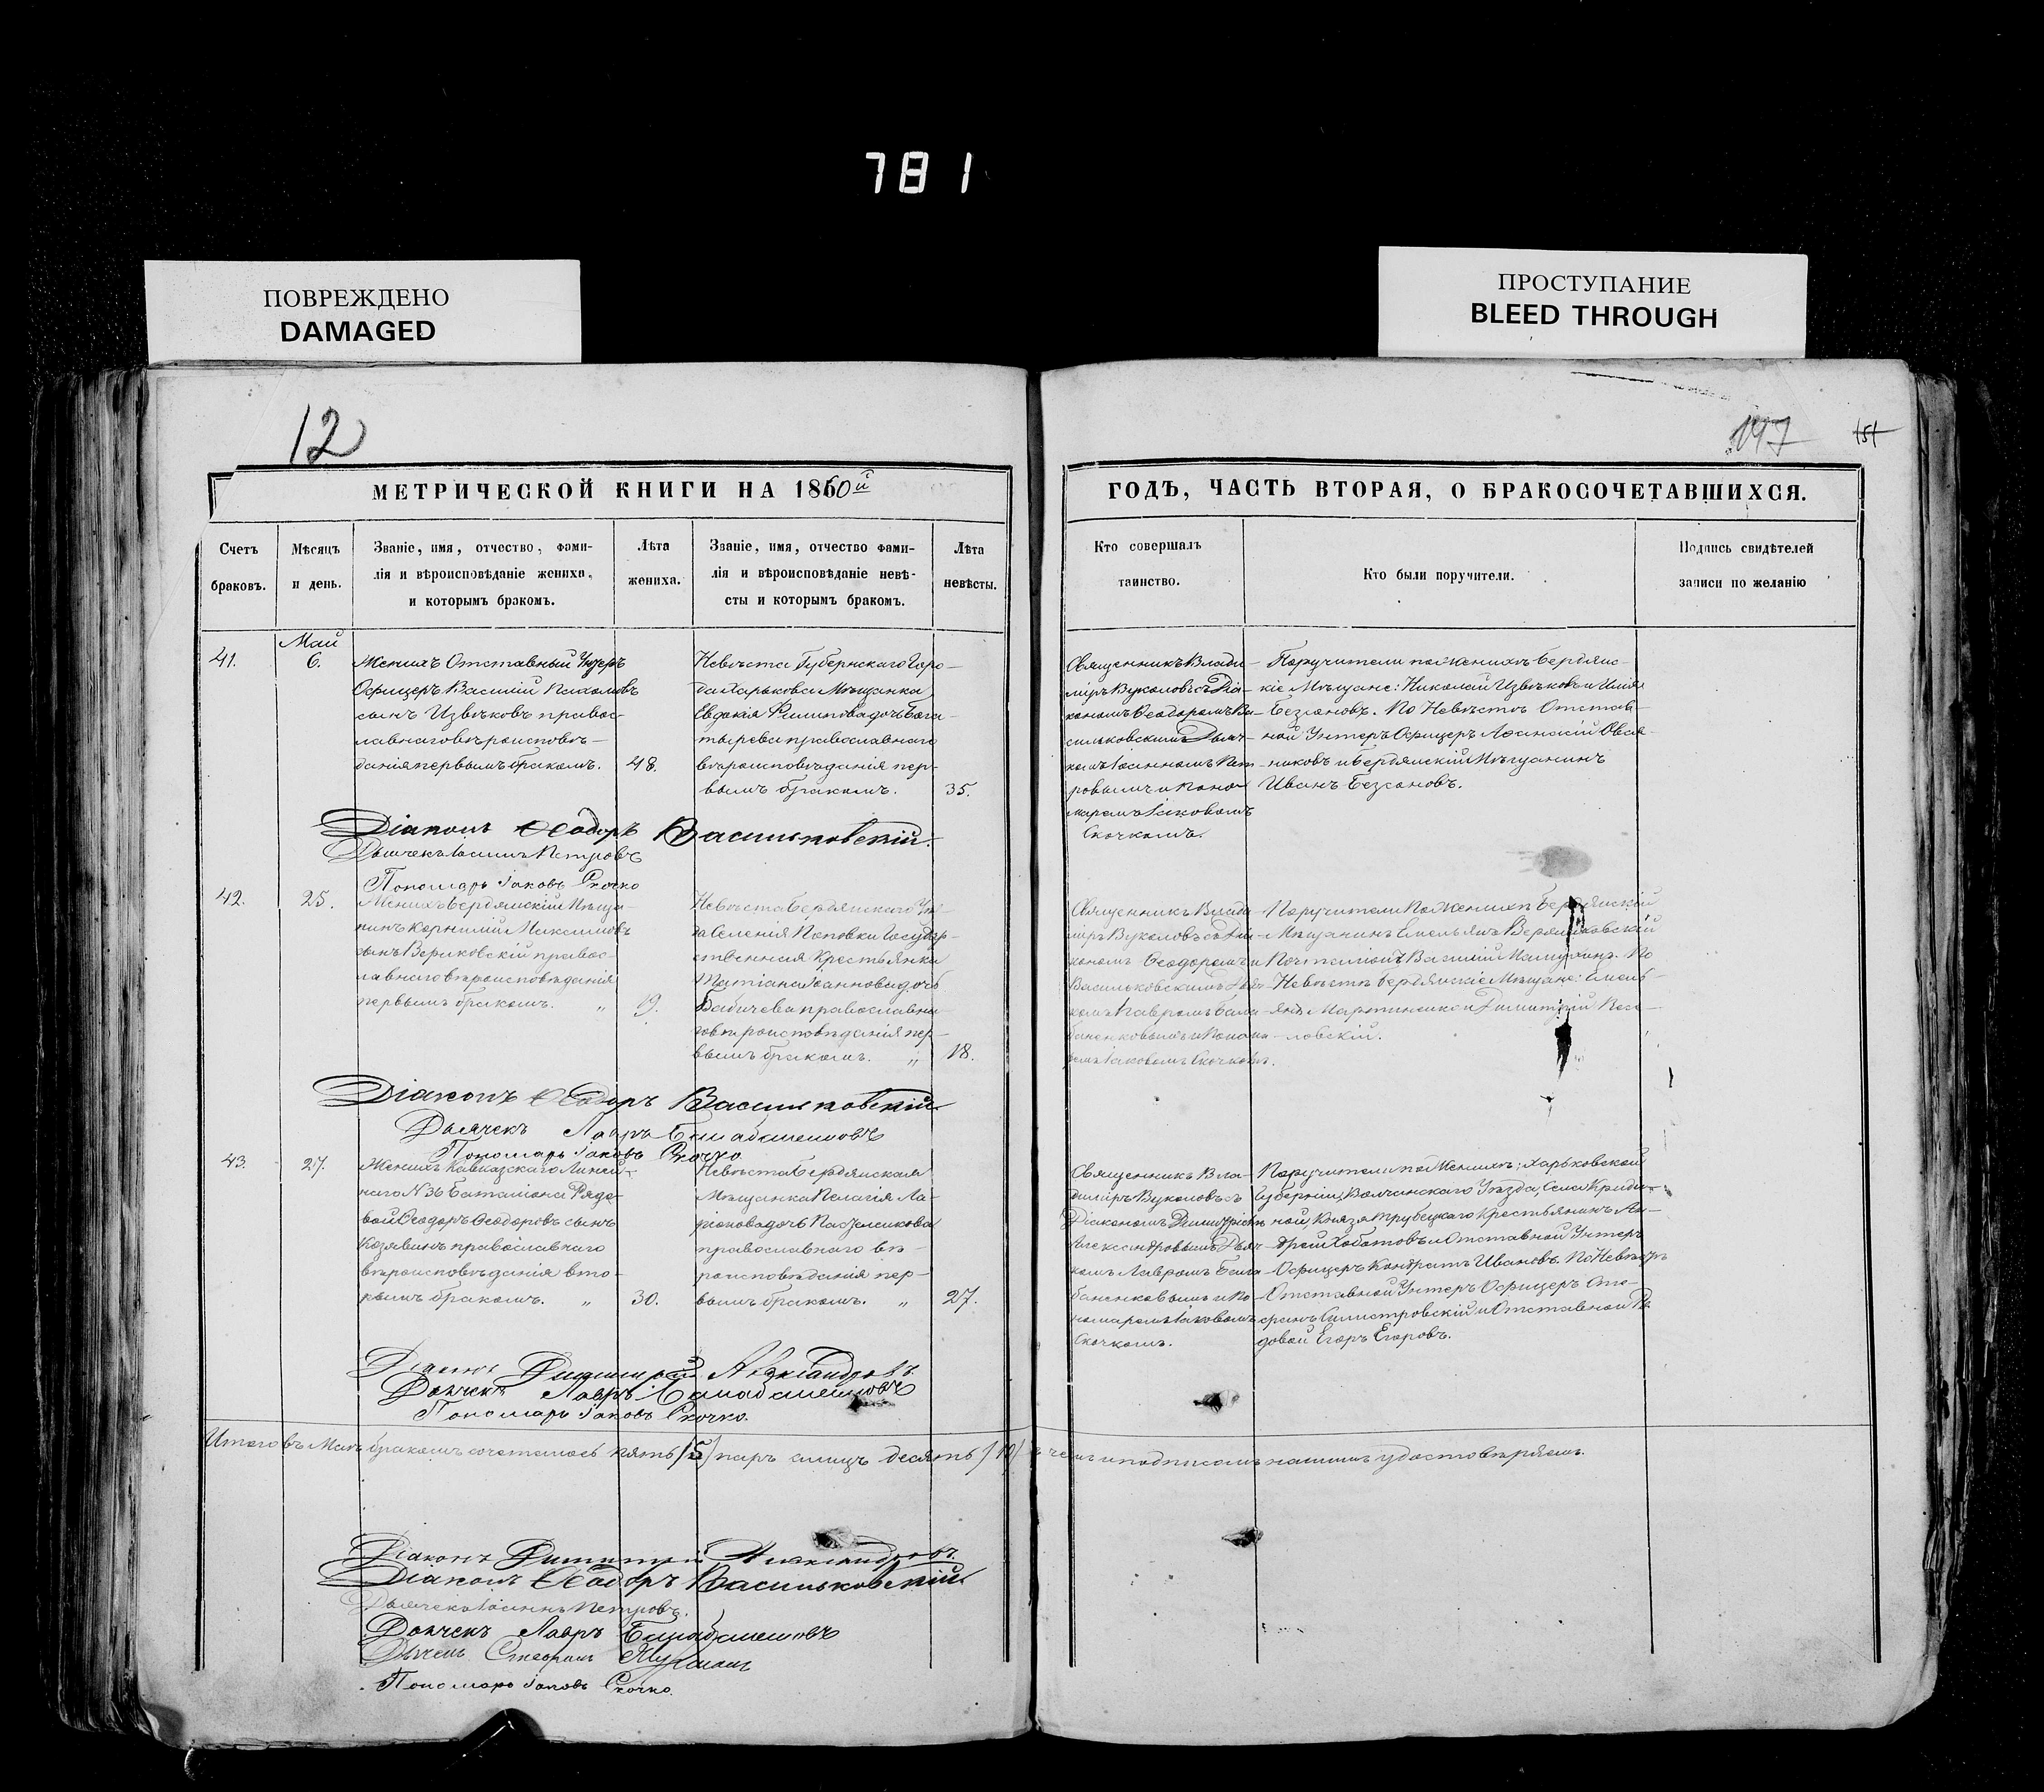 781
ПОВРЕЖДЕНО
DAMAGED
ПРОСТУПАНИЕ
BLEED THROUGH
12
147
151
МЕТРИЧЕСКОЙ КНИГИ НА 1860й
ГОДЪ, ЧАСТЬ ВТОРАЯ, О БРАКОСОЧЕТАВШИХСЯ.
Счетъ
браковъ.
Мѣсяцъ
и день.
Званіе, имя, отчество, фами-
лія и вѣроисповѣданіе жениха,
и которымъ бракомъ.
Лѣта
жениха.
Званіе, имя, отчество фами-
лія и вѣроисповѣданіе невѣ-
сты и которымъ бракомъ.
Лѣта
невѣсты.
Кто совершалъ
таинство.
Кто были поручители.
Подпись свидѣтелей
записи по желанію
41.
Май
6.
Женихъ Отставный Унтеръ
Офицеръ Василій Пахомовъ
сынъ Извѣковъ правос-
лавнаго вѣроисповѣ-
данія первымъ бракомъ.
48.
Невѣста Губернскаго Горо-
да Харькова Мѣщанка
Евдокія Филипова дочь Бога-
тырева православнаго
вѣроисповѣданія пер-
вымъ бракомъ.
35.
Священникъ Влади-
міръ Вуколовъ съ Діа-
кономъ Ѳеодоромъ Ва-
сильковскимъ Дьяч-
комъ Іоанномъ Пет-
ровымъ и Поно-
маремъ Іаковомъ
Скочкомъ.
Поручители по женихѣ Бердянс-
кіе Мѣщане: Николай Извѣковъ и Илія
Безсоновъ. По Невѣстѣ Отстав-
ной Унтеръ Офицеръ Аѳанасій Овся-
никовъ и Бердянскій Мѣщанинъ
Иванъ Безсоновъ.
Діаконъ Ѳеодоръ Васильковскій.
Дьячекъ Іоаннъ Петровъ
Пономарь Іаковъ Скочко
42.
25.
Женихъ Бердянскій Мѣща-
нинъ Корнилій Максимовъ
сынъ правос-
лавнаго вѣроисповѣданія
первымъ бракомъ. „
19.
Невѣста Бердянскаго Уѣз-
да Селенія Поповки Государ-
ственная Крестьянка
Татіана Іоаннова дочь
Бабичева православна-
го вѣроисповѣданія пер-
вымъ бракомъ. „
18.
Священникъ Влади-
міръ Вуколовъ съ Діа-
кономъ Ѳеодоромъ
Васильковскимъ Дьяч-
комъ Лавромъ Бала-
баненковымъ и Понома-
ремъ Іаковомъ Скочкомъ.
Поручители По Женихѣ Бердянскій
Мѣщанинъ Емельянъ
и Василій По
Невѣстѣ Бердянскіе Мѣщане: Емель-
янъ Мартыненко и Димитрій Весе-
ловскій.
Діаконъ Ѳеодоръ Васильковскій
Дьячекъ Лавръ
Пономарь Іаковъ Скочко
43.
27.
Женихъ Кавказскаго Линей-
наго № 36 Баталіона Рядо-
вой Ѳеодоръ Ѳеодоровъ сынъ
Козявинъ православнаго
вѣроисповѣданія вто-
рымъ бракомъ. „
30.
Невѣста Бердянская
Мѣщанка Пелагія Ла-
ріонова дочь
православнаго вѣ-
роисповѣданія пер-
вымъ бракомъ. „
27.
Священникъ Вла-
диміръ Вуколовъ съ
Діакономъ Димитріемъ
Александровымъ Дьяч-
комъ Лавромъ Бала-
баненковымъ и По-
номаремъ Іаковомъ
Скочкомъ.
Поручители по Женихѣ: Харьковской
Губерніи, Волчанскаго Уѣзда, Села
Князя Трубецкаго Крестьянинъ Ан-
дрей Хоботовъ и Отставной Унтеръ
Офицеръ Кондратъ Ивановъ. По Невѣстѣ
Отставной Унтеръ Офицеръ Сте-
фанъ Силистровскій и Отставной Ря-
довой Егоръ Егоровъ.
Діаконъ Димитрій Александровъ.
Дьячекъ Лавръ
Пономарь Іаковъ Скочко.
Итого въ Маѣ бракомъ сочеталось пять /5/ паръ а лицъ десять /10/ въ чемъ и подписомъ нашимъ удостовѣряемъ.
Діаконъ Димитрій Александровъ.
Діаконъ Ѳеодоръ Васильковскій
Дьячекъ Іоаннъ Петровъ.
Дьячекъ Лавръ
Дьячекъ Стефанъ
Пономарь Іаковъ Скочко.